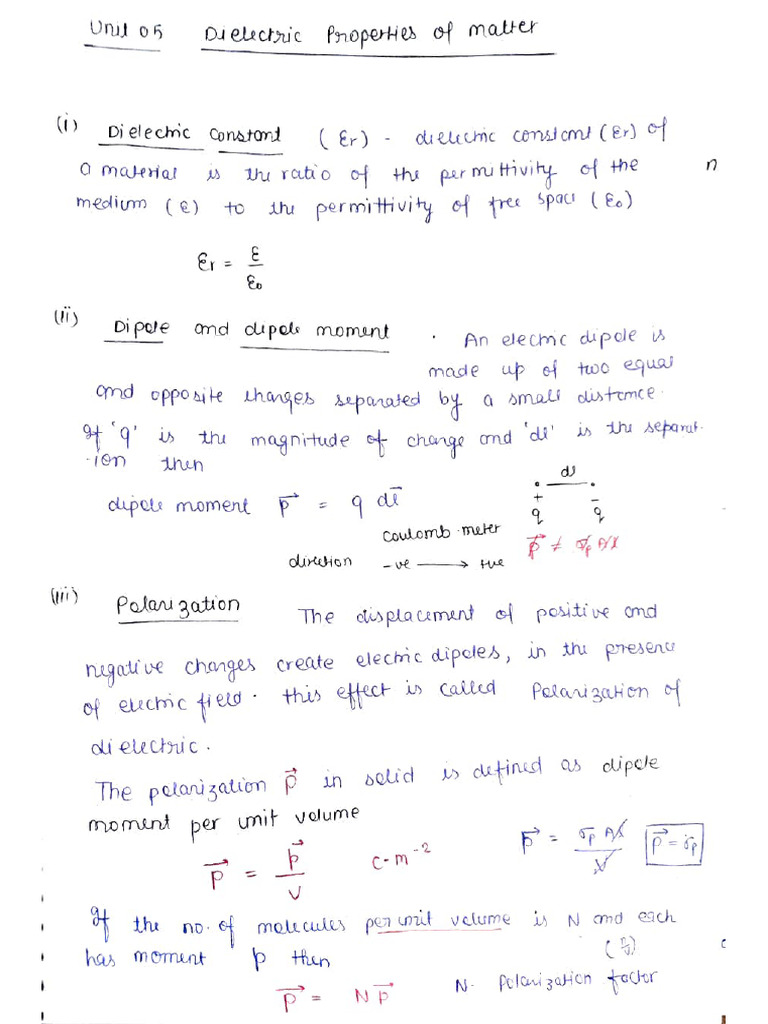 Unit 05 Dielectric Properties of matter
(i) Dielectric Constant (εr) - dielectric constant (εr) of
a material is the ratio of the permittivity of the
n
medium (ε) to the permittivity of free space (ε0)
εr = ε/ε0
(ii) Dipole and dipole moment . An electric dipole is
made up of two equal
and opposite charges separated by a small distance.
If 'q' is the magnitude of charge and 'dl' is the separat-
-ion then
dl
+ -
q q
dipole moment p⃗ = q dl⃗
coulomb-meter
p⃗ ≠ σp A/l
direction -ve ⟶ +ve
(iii) Polarization The displacement of positive and
negative charges create electric dipoles, in the presence
of electric field. this effect is called Polarization of
dielectric.
The polarization p⃗ in solid is defined as dipole
moment per unit volume
P⃗ = p⃗/V C-m⁻²
P⃗ = σp A l/V P⃗ = σp
If the no. of molecules per unit volume is N and each
has moment p then
P⃗ = N p⃗
N. Polarization factor